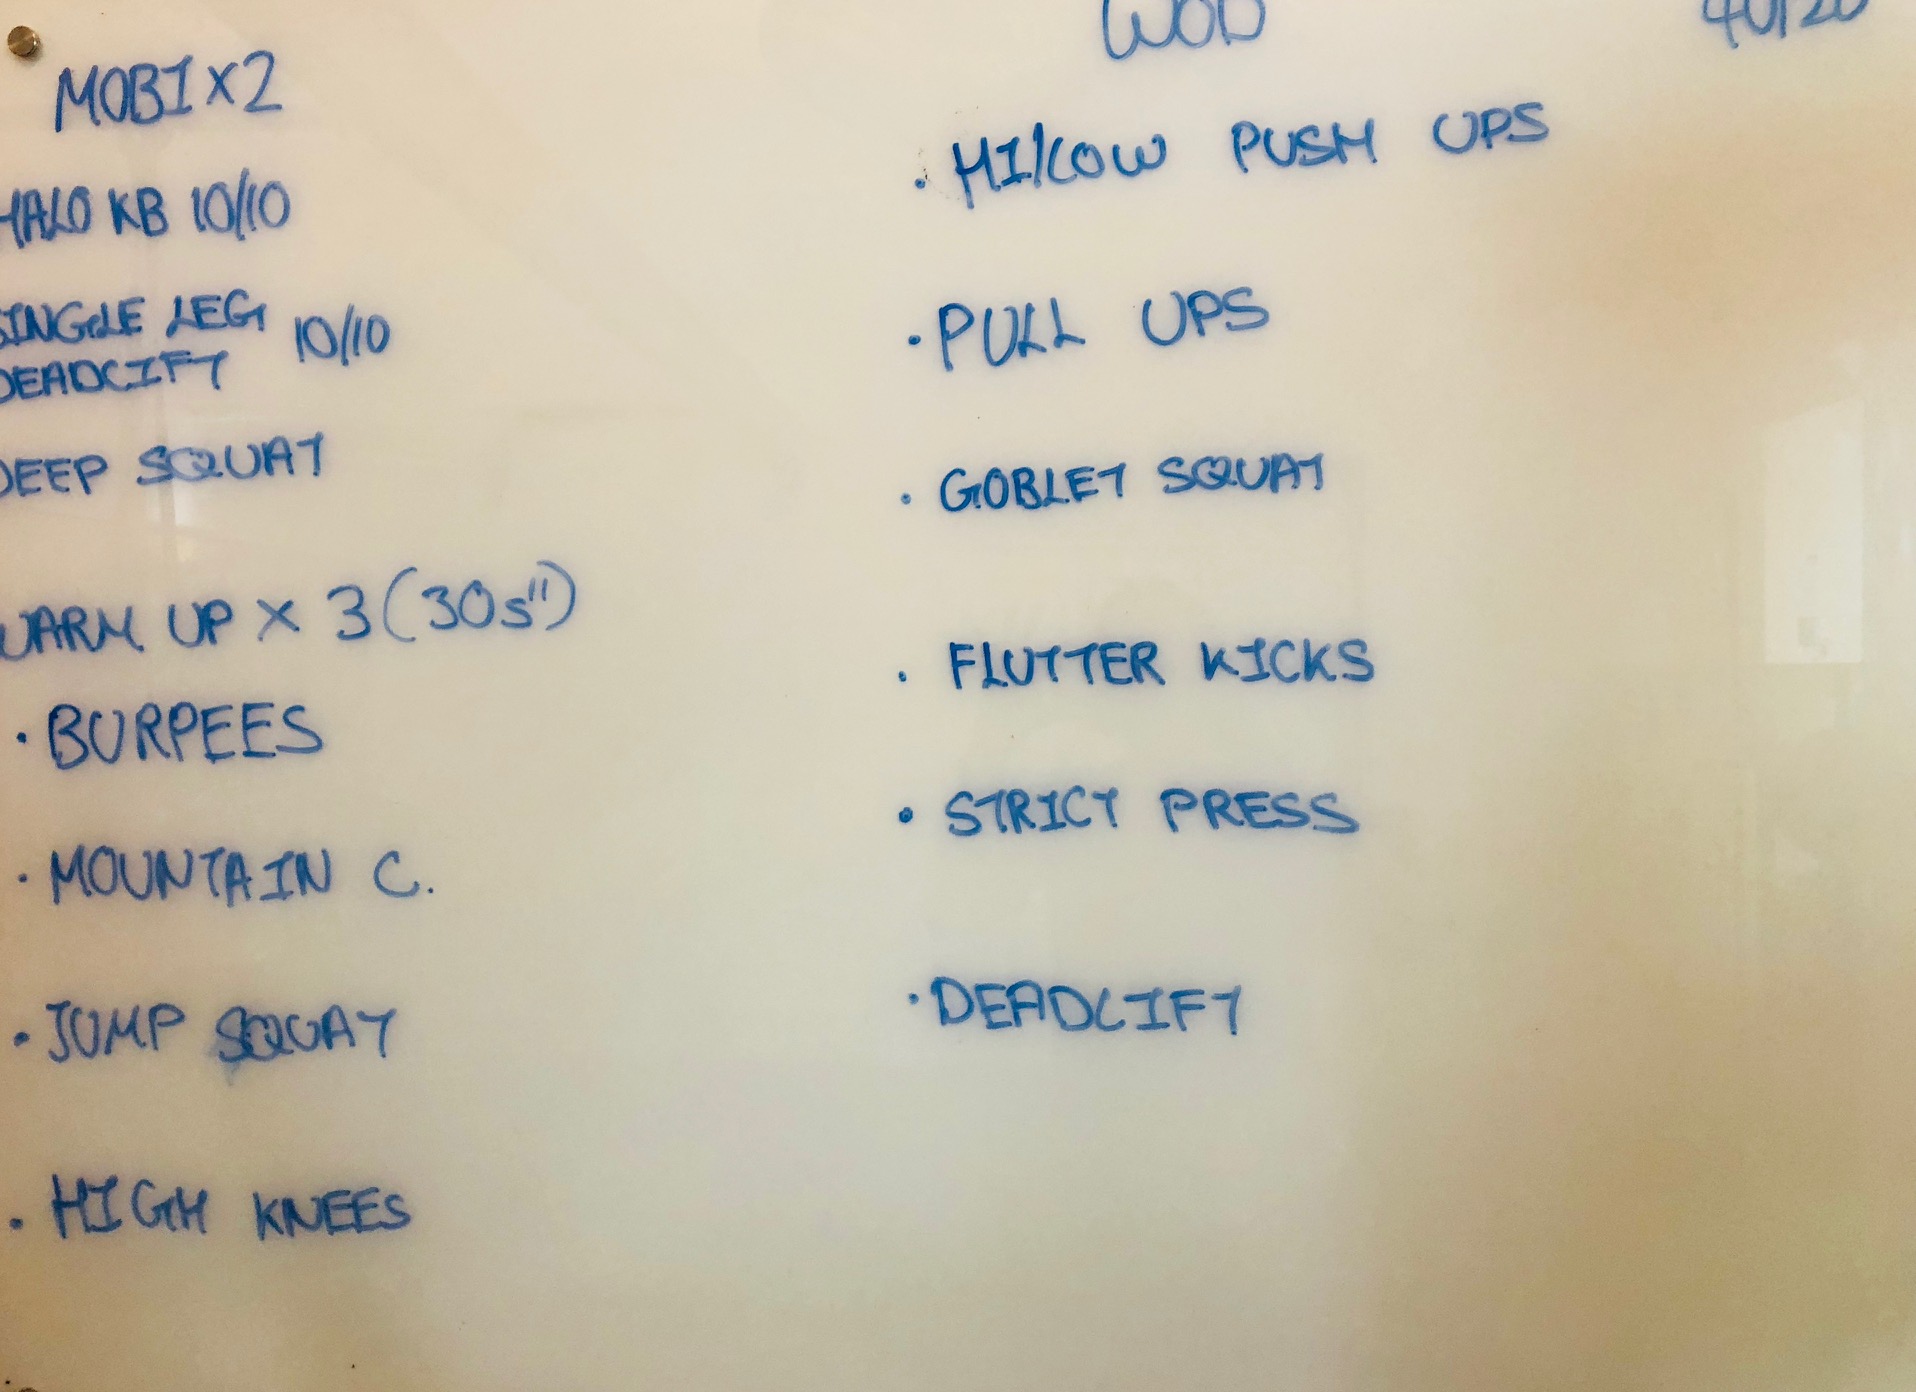 MOBI x2
HALO KB 10/10
SINGLE LEG 10/10
DEADLIFT
DEEP SQUAT
WARM UP x 3 (30s")
· BURPEES
· MOUNTAIN C.
· JUMP SQUAT
· HIGH KNEES
WOD 40/20
· HI/LOW PUSH UPS
· PULL UPS
· GOBLET SQUAT
· FLUTTER KICKS
· STRICT PRESS
· DEADLIFT